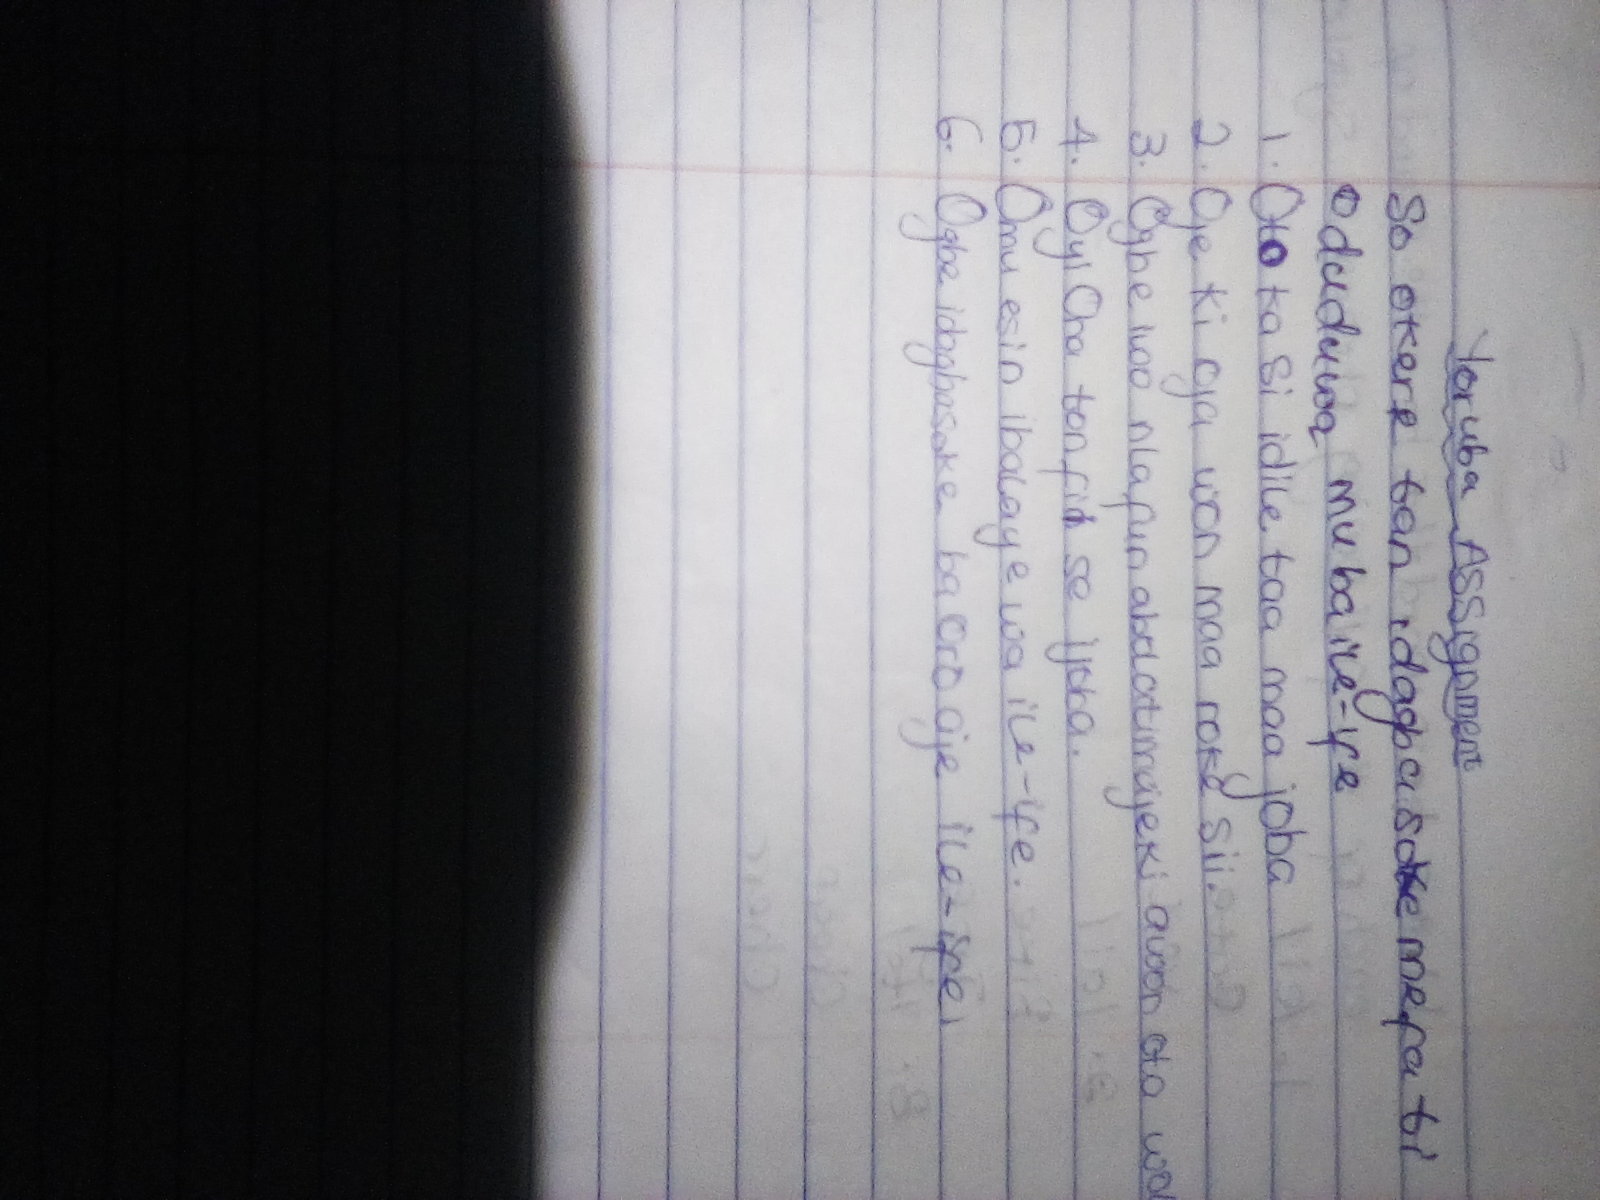 Yoruba Assignment
So okere tan idagbasoke mefa ti
Oduduwa mu ba ile-ife
1. Oto ka si idile taa maa joba
2. Oje ki oya won maa roke sii.
3. Ogbe iwo nlapin abalatimajeki awon ota wol
4. Oyi Oba tonfin se ijoba.
5. Omu esin ibalaye wa ile-ife.
6. Ogbe idagbasoke ba oro aje ile-ife.